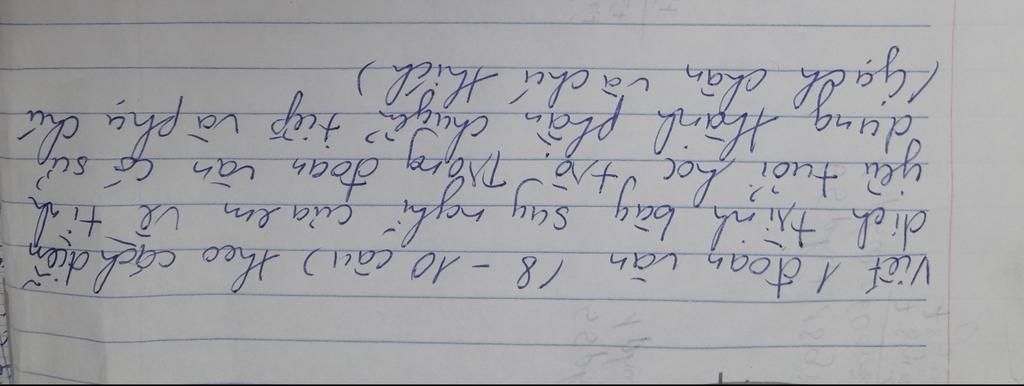 Viết 1 đoạn văn (8 - 10 câu) theo cách diễn
dịch trình bày suy nghĩ của em về tình
yêu tuổi học trò. Trong đoạn văn có sử
dụng thành phần chuyển tiếp và phụ chú
(Gạch chân và chú thích)